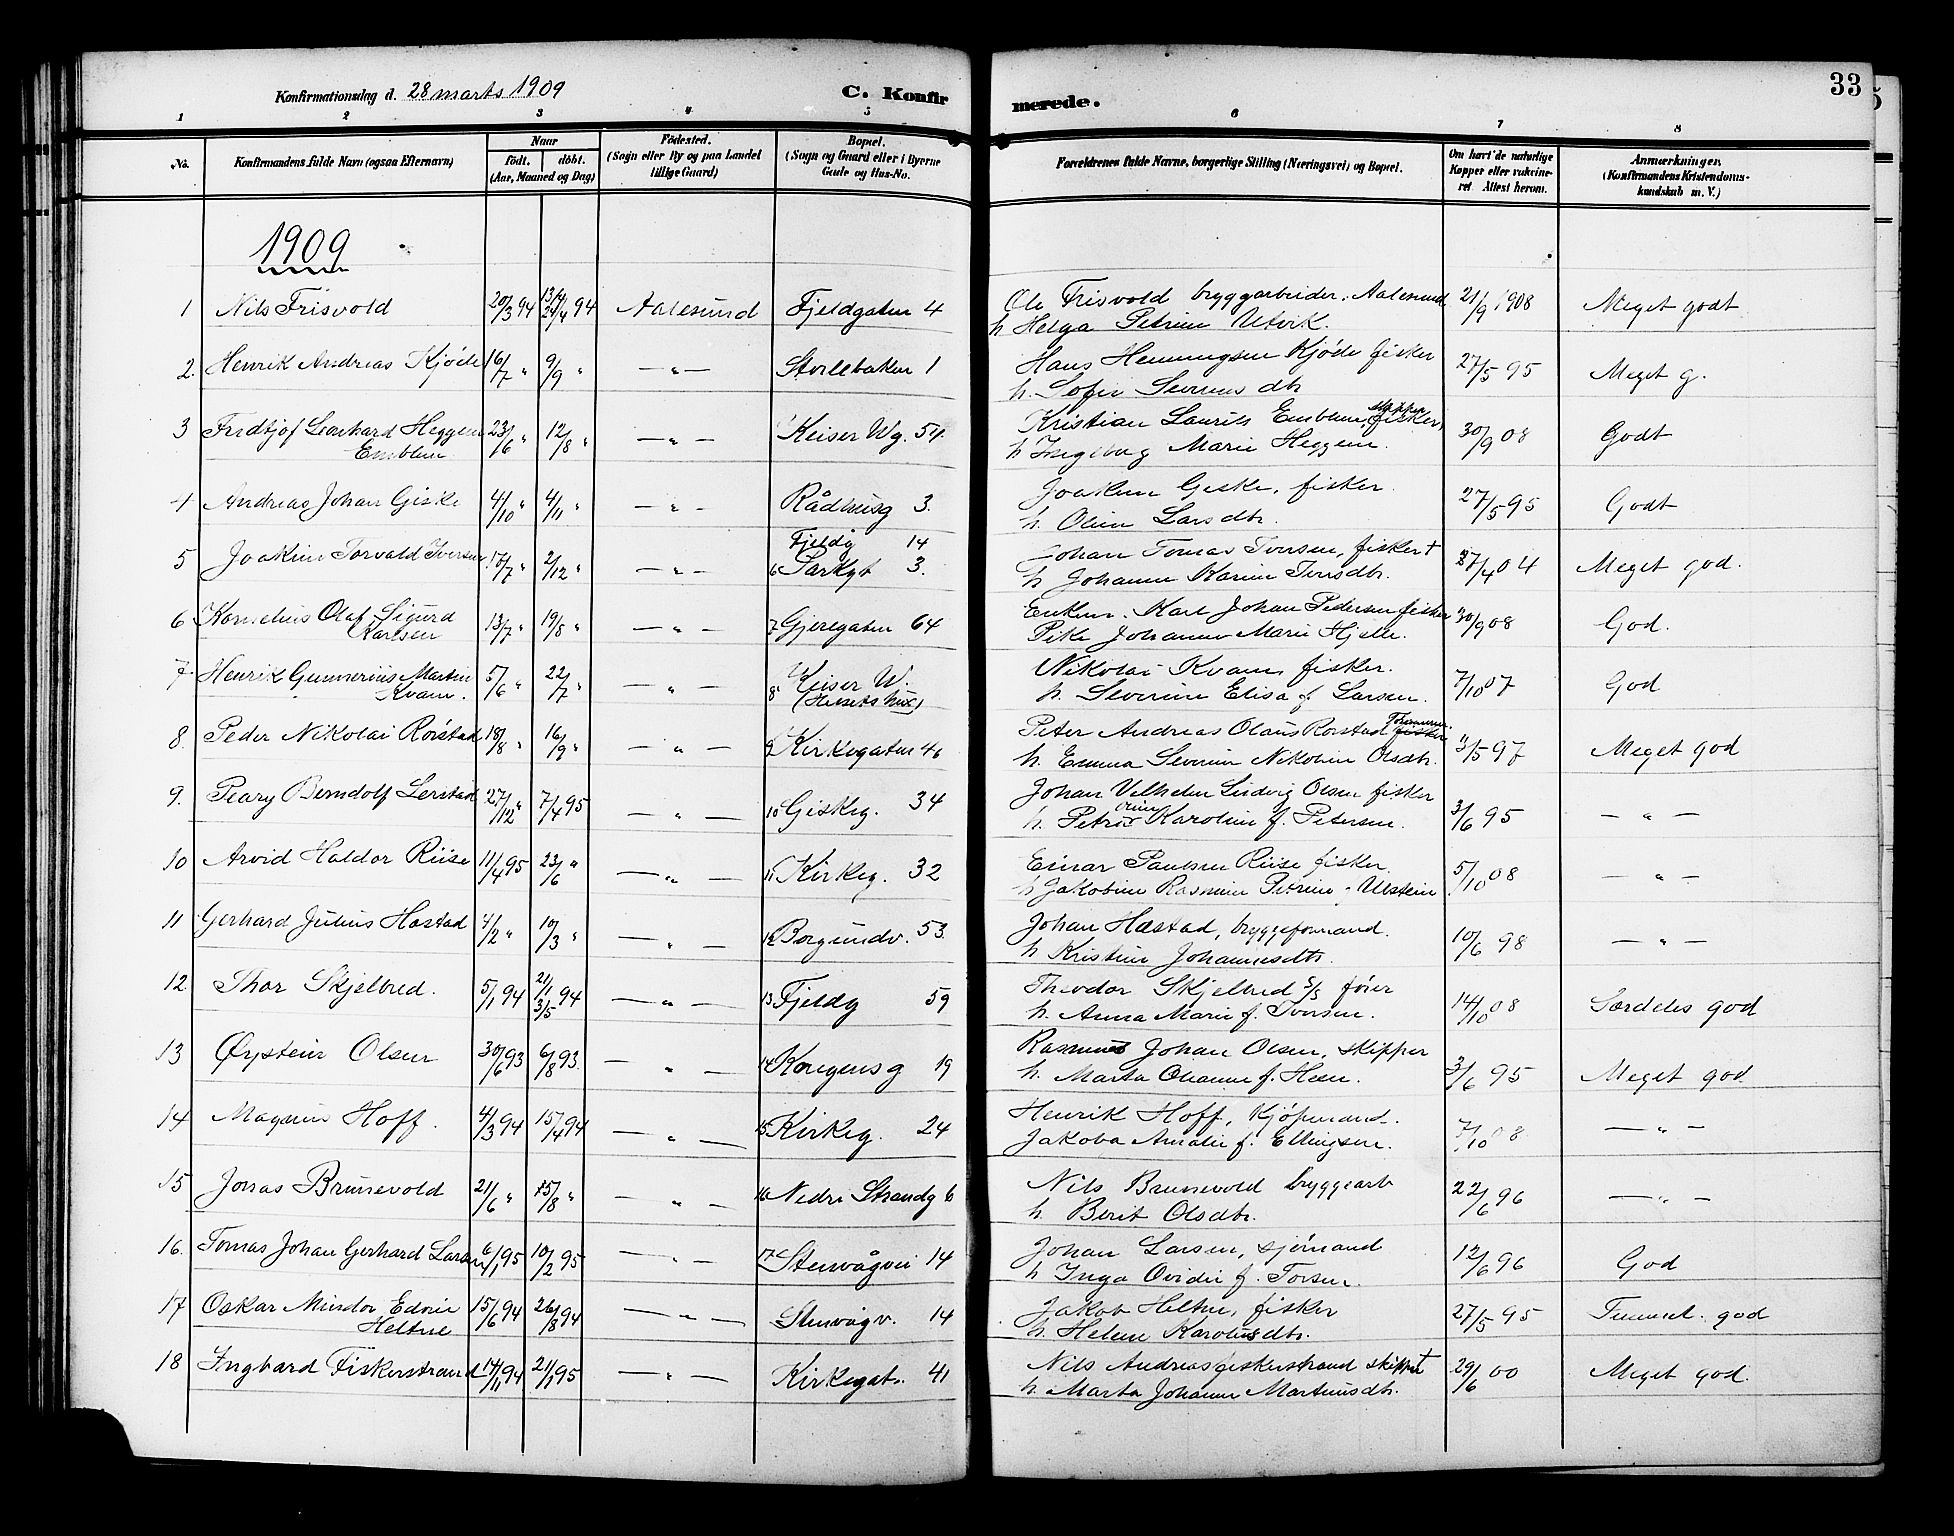 Konfirmationsdag d. 28 marts 1909 C. Konfir
merede. 33
1 2 3 4 5 6 7 8
No. Konfirmandens fulde Navn (ogsaa Efternavn) Naar født. døbt. (Aar, Maaned og Dag) Fødested. (Sogn eller By og paa Landet tillige Gaard) Bopæl. (Sogn og Gaard eller i Byerne Gade og Hus-No. Forældrenes fulde Navne, borgerlige Stilling (Næringsvei) og Bopæl. Om havt de naturlige Kopper eller vakcineret. Attest herom. Anmærkninger. (Konfirmandens Kristendomskundskab m. V.)
1909
1 Nils Frisvold 20/3 94 13/4 24/4 94 Aalesund Fjeldgaten 4 Ole Frisvold bryggarbeider, Aalesund 21/9 1908 Meget godt
h Helga Petrine Utvik.
2. Henrik Andreas Kjøde 16/7 " 9/9 " — " — Storlebakken 1 Hans Henningsen Kjøde fisker 27/5 95 Meget g.
h. Sofie Severinsdtr
3 Fridtjof Leonhard Heggem 23/6 " 12/8 " — " — Keiser Wg. 54 Kristian Laurits Emblem, fisker, 30/9 08 Godt
Emblem h Ingeborg Marie Heggem.
4 Andreas Johan Giske 4/10 " 4/11 " — " — Rådhusg 3. Joakim Giske, fisker. 27/5 95 Godt
h. Oline Larsdtr.
Fjeldg 14
5 Joakim Torvald Iversen 17/7 " 2/12 " — " — 6 Parkgt 3. Johan Tomas Iversen, fisker † 27/4 04 Meget god.
h Johanne Karine Iversdtr.
6 Kornelius Olaf Sigurd 13/7 " 19/8 " — " — 7 Gjeregaten 64 Enkem. Karl Johan Pedersen fisker 30/9 08 God.
Karlsen Pike Johanne Marie Hjelle.
7. Henrik Gunnerius Martin 5/6 " 22/7 " — " — 8 Keiser W. Nikolai Kvam, fisker. 7/10 07 God
Kvam. h. Severine Elisa f. Larsen.
8. Peder Nikolai Rørstad 18/8 " 16/9 " — " — 9 Kirkegaten 46 Peter Andreas Olaus Rørstad fisker 11/5 97 Meget god
h. Emma Severine Nikoline Olsdtr.
9. Peary Berndolf Lerstad 27/12 " 7/4 95 — " — 10 Giskeg. 34 Johan Vilhelm Ludvig Olsen fisker 3/6 95 — " —
h. Petrine Karoline f. Petersen.
10 Arvid Haldor Riise 11/4 95 23/6 " — " — 11 Kirkeg. 32 Einar Paulsen Riise fisker. 5/10 08 — " —
h Jakobine Rasmine Petrine Ulstein
11 Gerhard Julius Hastad 4/2 " 10/3 " — " — 12 Borgundv. 53. Johan Hastad, bryggeformand. 10/6 98 — " —
h Kristine Johannesdtr.
12. Thor Skjelbred. 5/1 94 21/1 3/5 94 — " — 13 Fjeldg 59 Theodor Skjelbred S/S fører 14/10 08 Særdeles god
h. Anna Marie f. Iversen.
13 Øystein Olsen 30/6 93 6/8 93. — " — 14 Kongensg 19 Rasmus Johan Olsen, skipper 3/6 95 Meget god
h. Marta Oluanne f. Heen.
14 Magnus Hoff. 4/3 94 15/4 94 — " — 15 Kirkeg. 24 Henrik Hoff, Kjøpmand. 7/10 08 — " —
Jakoba Amalie f. Ellingsen.
15 Jonas Brunsvold 21/6 " 15/8 " — " — 16 Nedre Strandg 6 Nils Brunsvold bryggearb 22/6 96 — " —
h. Berit Olsdtr.
16. Tomas Johan Gerhard Larsen 6/1 95 10/2 95 — " — 17 Stenvågvei 14 Johan Larsen, sjømand 12/6 96 God
h Inga Ovidie f. Torsen.
17 Oskar Mindor Edvin 15/6 94 26/8 94 — " — Stenvågv. 14 Jakob Heltne, fisker 27/5 95 Temmel. god
Heltne h. Helene Karolusdtr.
18 Ingvard Fiskerstrand 14/11 94 21/1 95 — " — Kirkegat. 41 Nils Andreas Fiskerstrand skipper † 29/6 00 Meget god.
h Marta Johanne Martinusdtr.